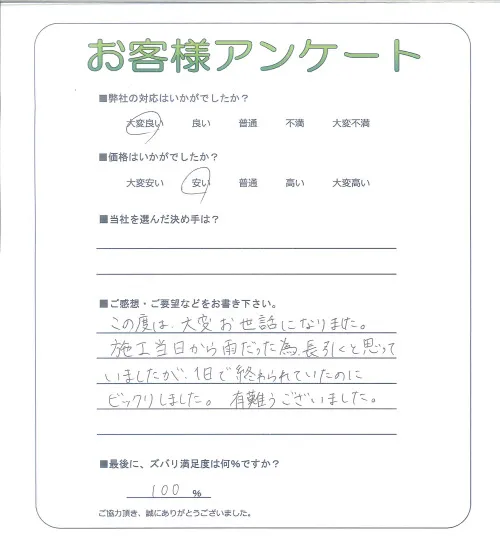 お客様アンケート
■弊社の対応はいかがでしたか？
大変良い 良い 普通 不満 大変不満
■価格はいかがでしたか？
大変安い 安い 普通 高い 大変高い
■当社を選んだ決め手は？
■ご感想・ご要望などをお書き下さい。
この度は、大変お世話になりました。
施工当日から雨だった為、長引くと思って
いましたが、1日で終わられていたのに
ビックリしました。 有難うございました。
■最後に、ズバリ満足度は何%ですか？
100 %
ご協力頂き、誠にありがとうございました。